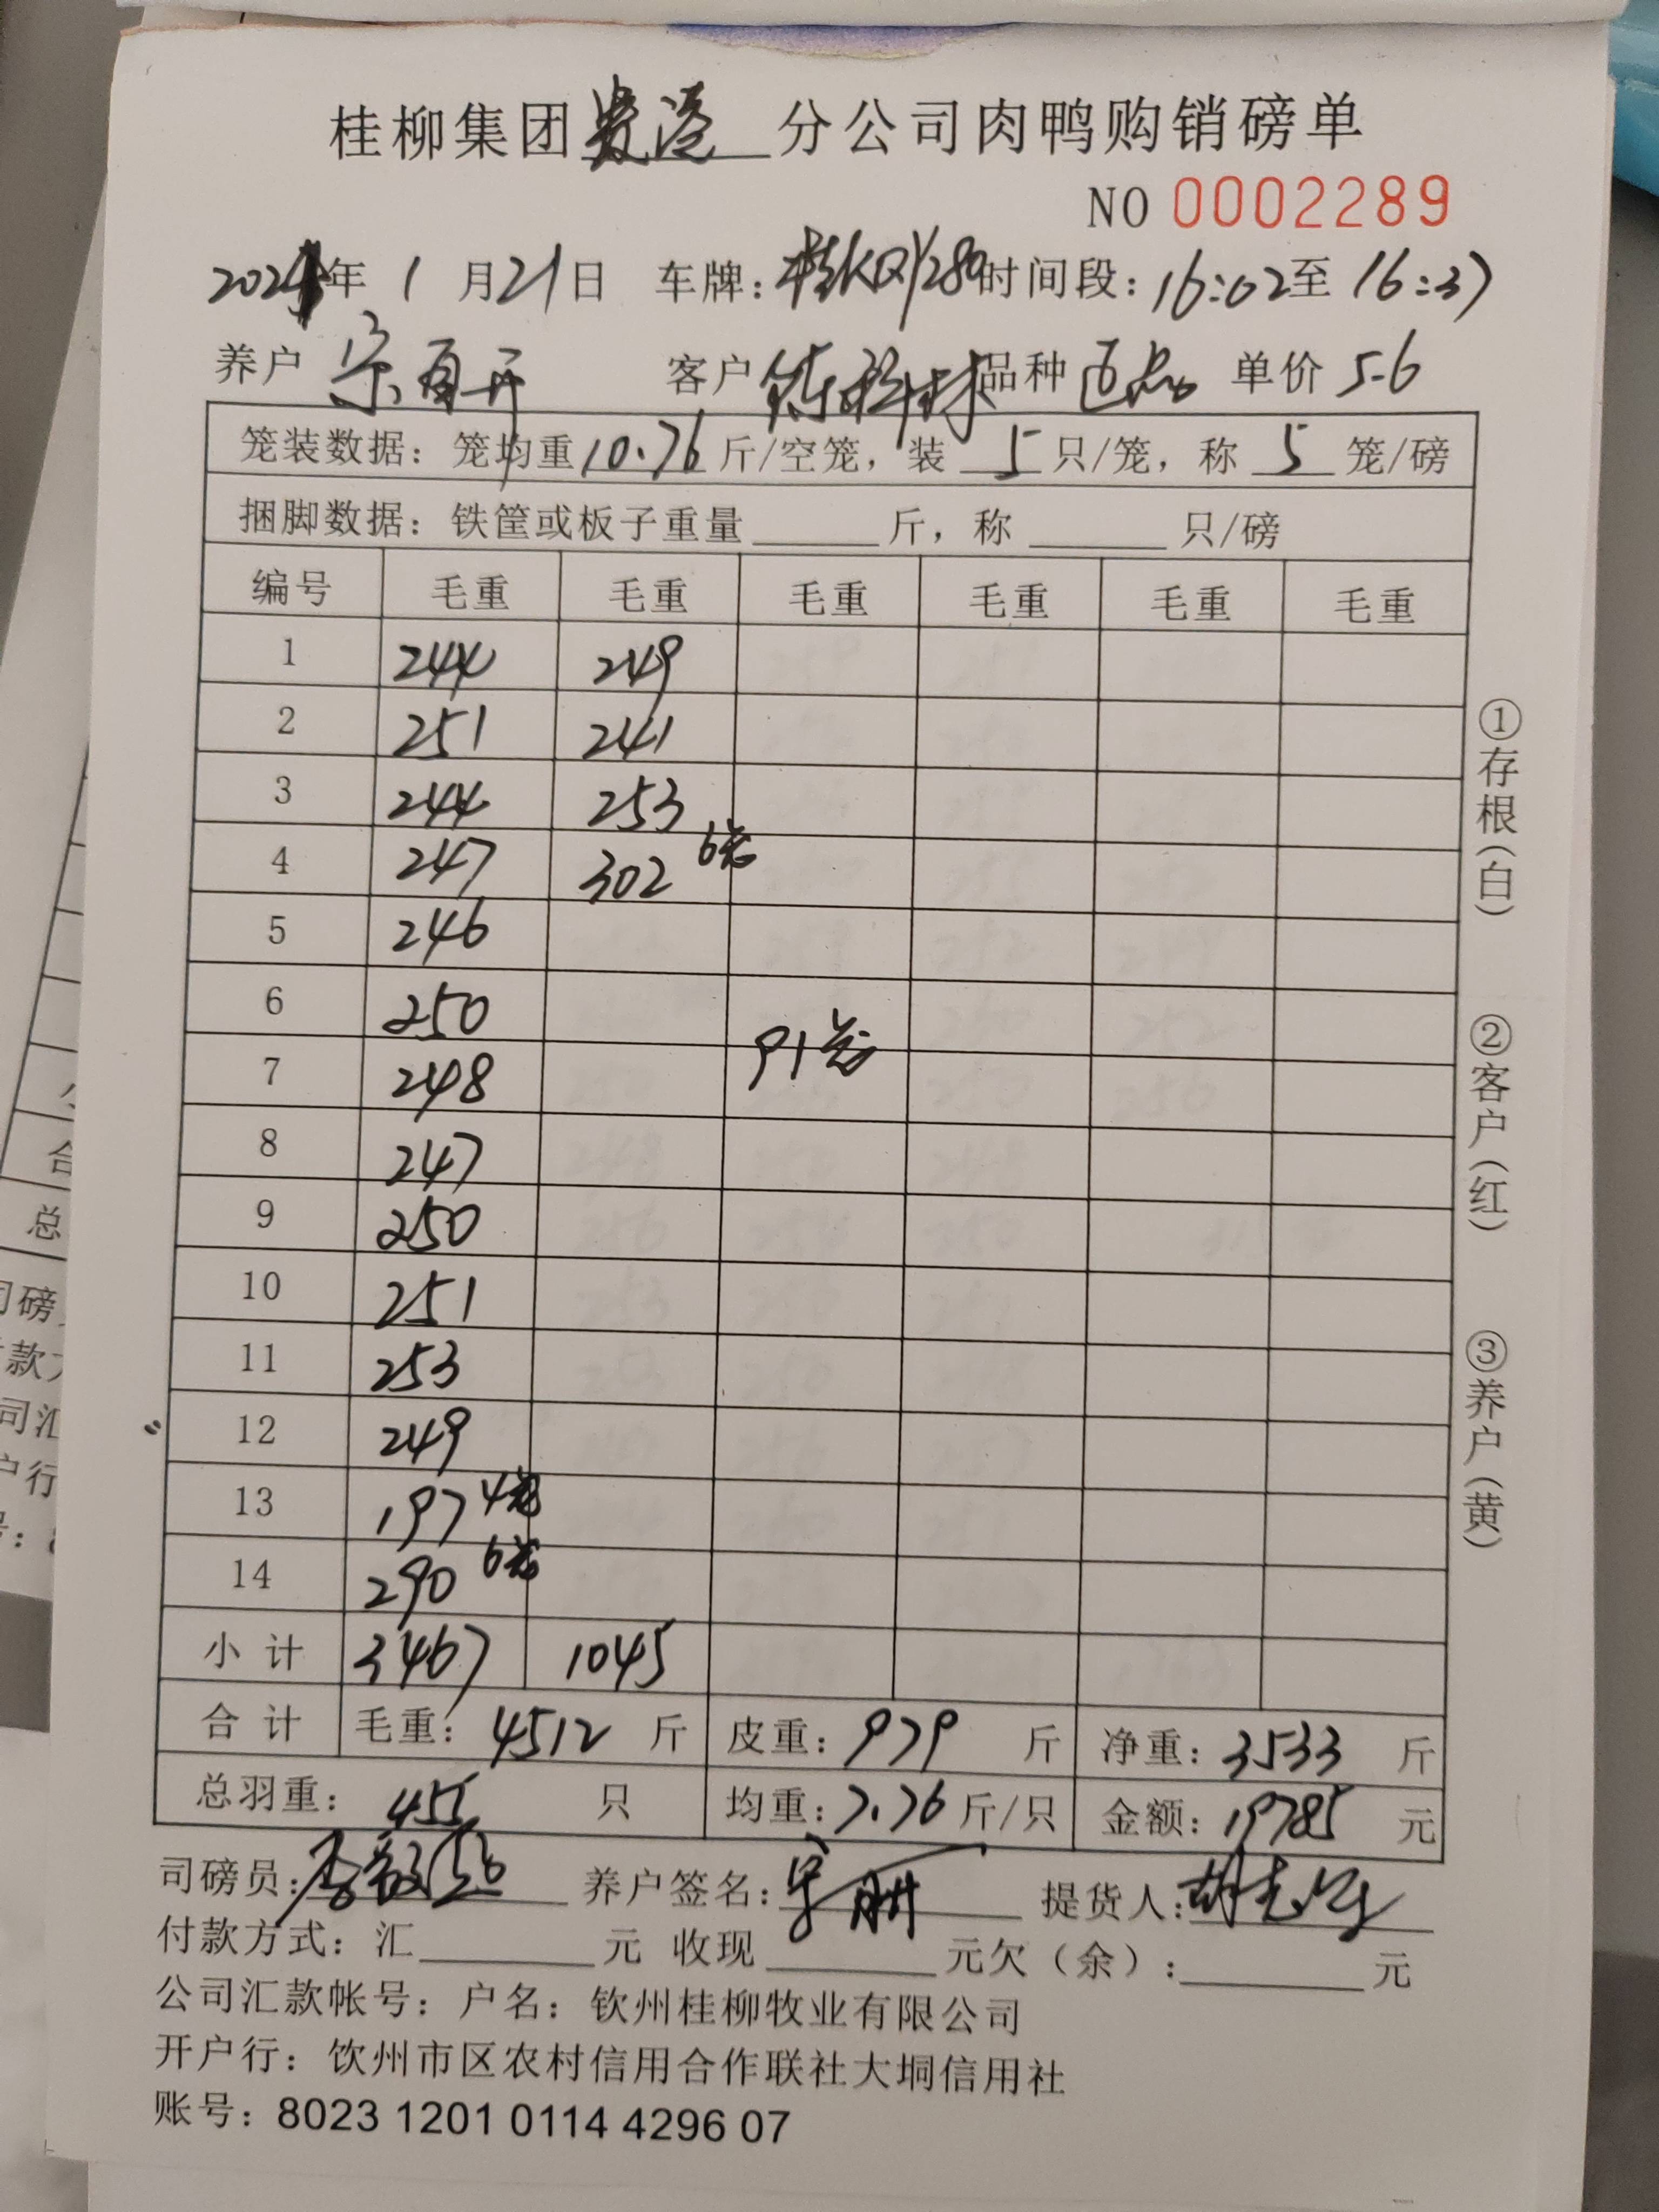 桂柳集团贵港分公司肉鸭购销磅单
NO 0002289
年 1 月 21 日 车牌: 时间段: 16:02 至 16:37
养户 客户 品种 单价 5.6
笼装数据: 笼均重 10.76 斤/空笼, 装 5 只/笼, 称 5 笼/磅
捆脚数据: 铁筐或板子重量 斤, 称 只/磅
编号 毛重 毛重 毛重 毛重 毛重 毛重
1 244 249
2 251 241
3 244 253
4 247 302 6笼
5 246
6 250
7 248 91笼
8 247
9 250
10 251
11 253
12 249
13 197 4笼
14 290 6笼
小计 3467 1045
合计 毛重: 4512 斤 皮重: 979 斤 净重: 3533 斤
总羽重: 455 只 均重: 7.76 斤/只 金额: 19785 元
司磅员: 养户签名: 提货人:
付款方式: 汇 元 收现 元欠(余): 元
公司汇款帐号: 户名: 钦州桂柳牧业有限公司
开户行: 饮州市区农村信用合作联社大垌信用社
账号: 8023 1201 0114 4296 07
①存根(白)
②客户(红)
③养户(黄)